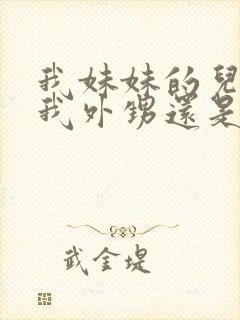 我妹妹的兒
我外甥還是
武金堤